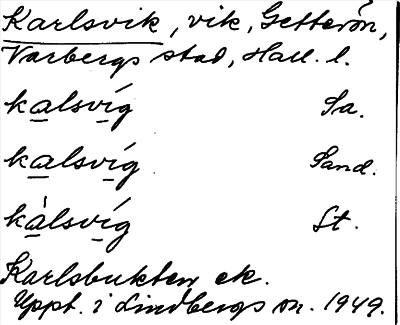 Karlsvik, vik, Getterön,
Varbergs stad, Hall. l.
kalsvíg Sa.
kalsvíg Sand.
kàlsvíg St.
Karlsbukten ek.
Uppt. i Lindbergs sn. 1949.